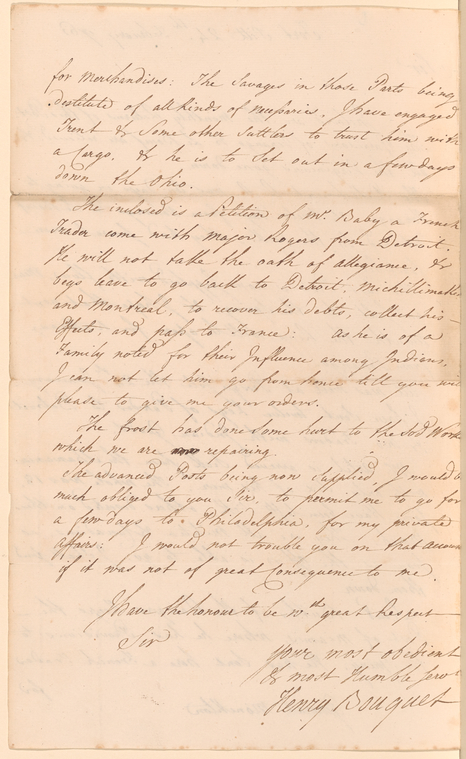 for Merchandises: The Savages in those Parts being
destitute of all Kinds of necessaries. I have engaged
Trent & Some other Suttlers to trust him with
a Cargo. & he is to Set out in a few days
down the Ohio.
The inclosed is a Petition of Mr. Baby a French
Trader come with Major Rogers from Detroit.
He will not take the oath of allegiance, &
begs leave to go back to Detroit, Michillimakk
and Montreal, to recover his debts, collect his
Effects, and pass to France: As he is of a
Family noted for their Influence among Indians,
I can not let him go from hence till you will
please to give me your orders.
The frost has done Some hurt to the Sod Work
which we are repairing.
The advanced Posts being now Supplied, I would b
much obliged to you Sir, to permit me to go for
a few days to Philadelphia, for my private
affairs: I would not trouble you on that accoun
if it was not of great Consequence to me.
I have the honour to be wth. great Respect
Sir
your most obedient
& most Humble Servt
Henry Bouquet